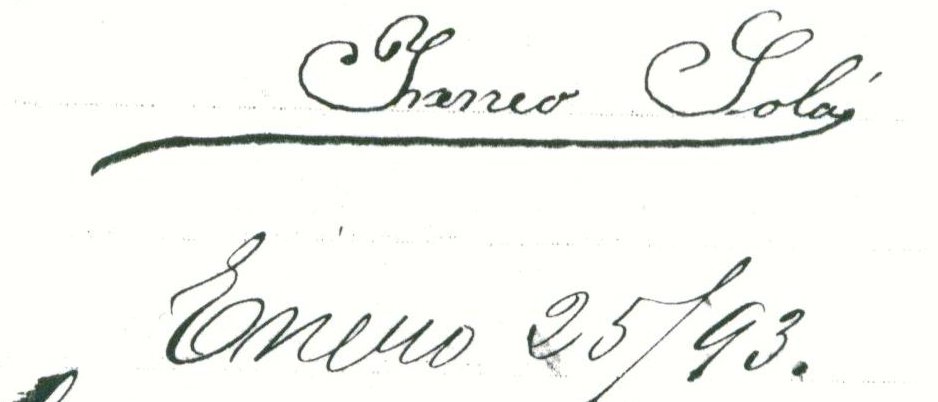 Solá
Enero 25/93.